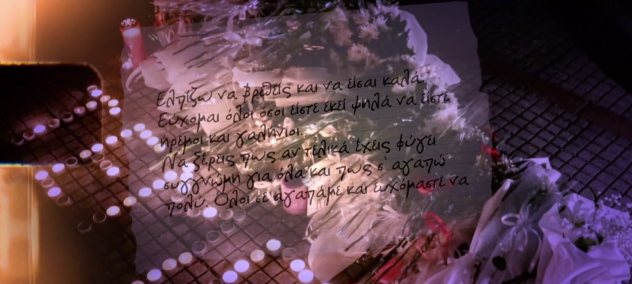 Ελπίζω να βρεθείς και να είσαι καλά.
Εύχομαι όλοι όσοι είστε εκεί ψηλά να είστε
ήρεμοι και γαλήνιοι.
Να ξέρεις πως αν τελικά έχεις φύγει
συγγνώμη για όλα και πως σ' αγαπώ
πολύ. Όλοι σε αγαπάμε και ευχόμαστε να